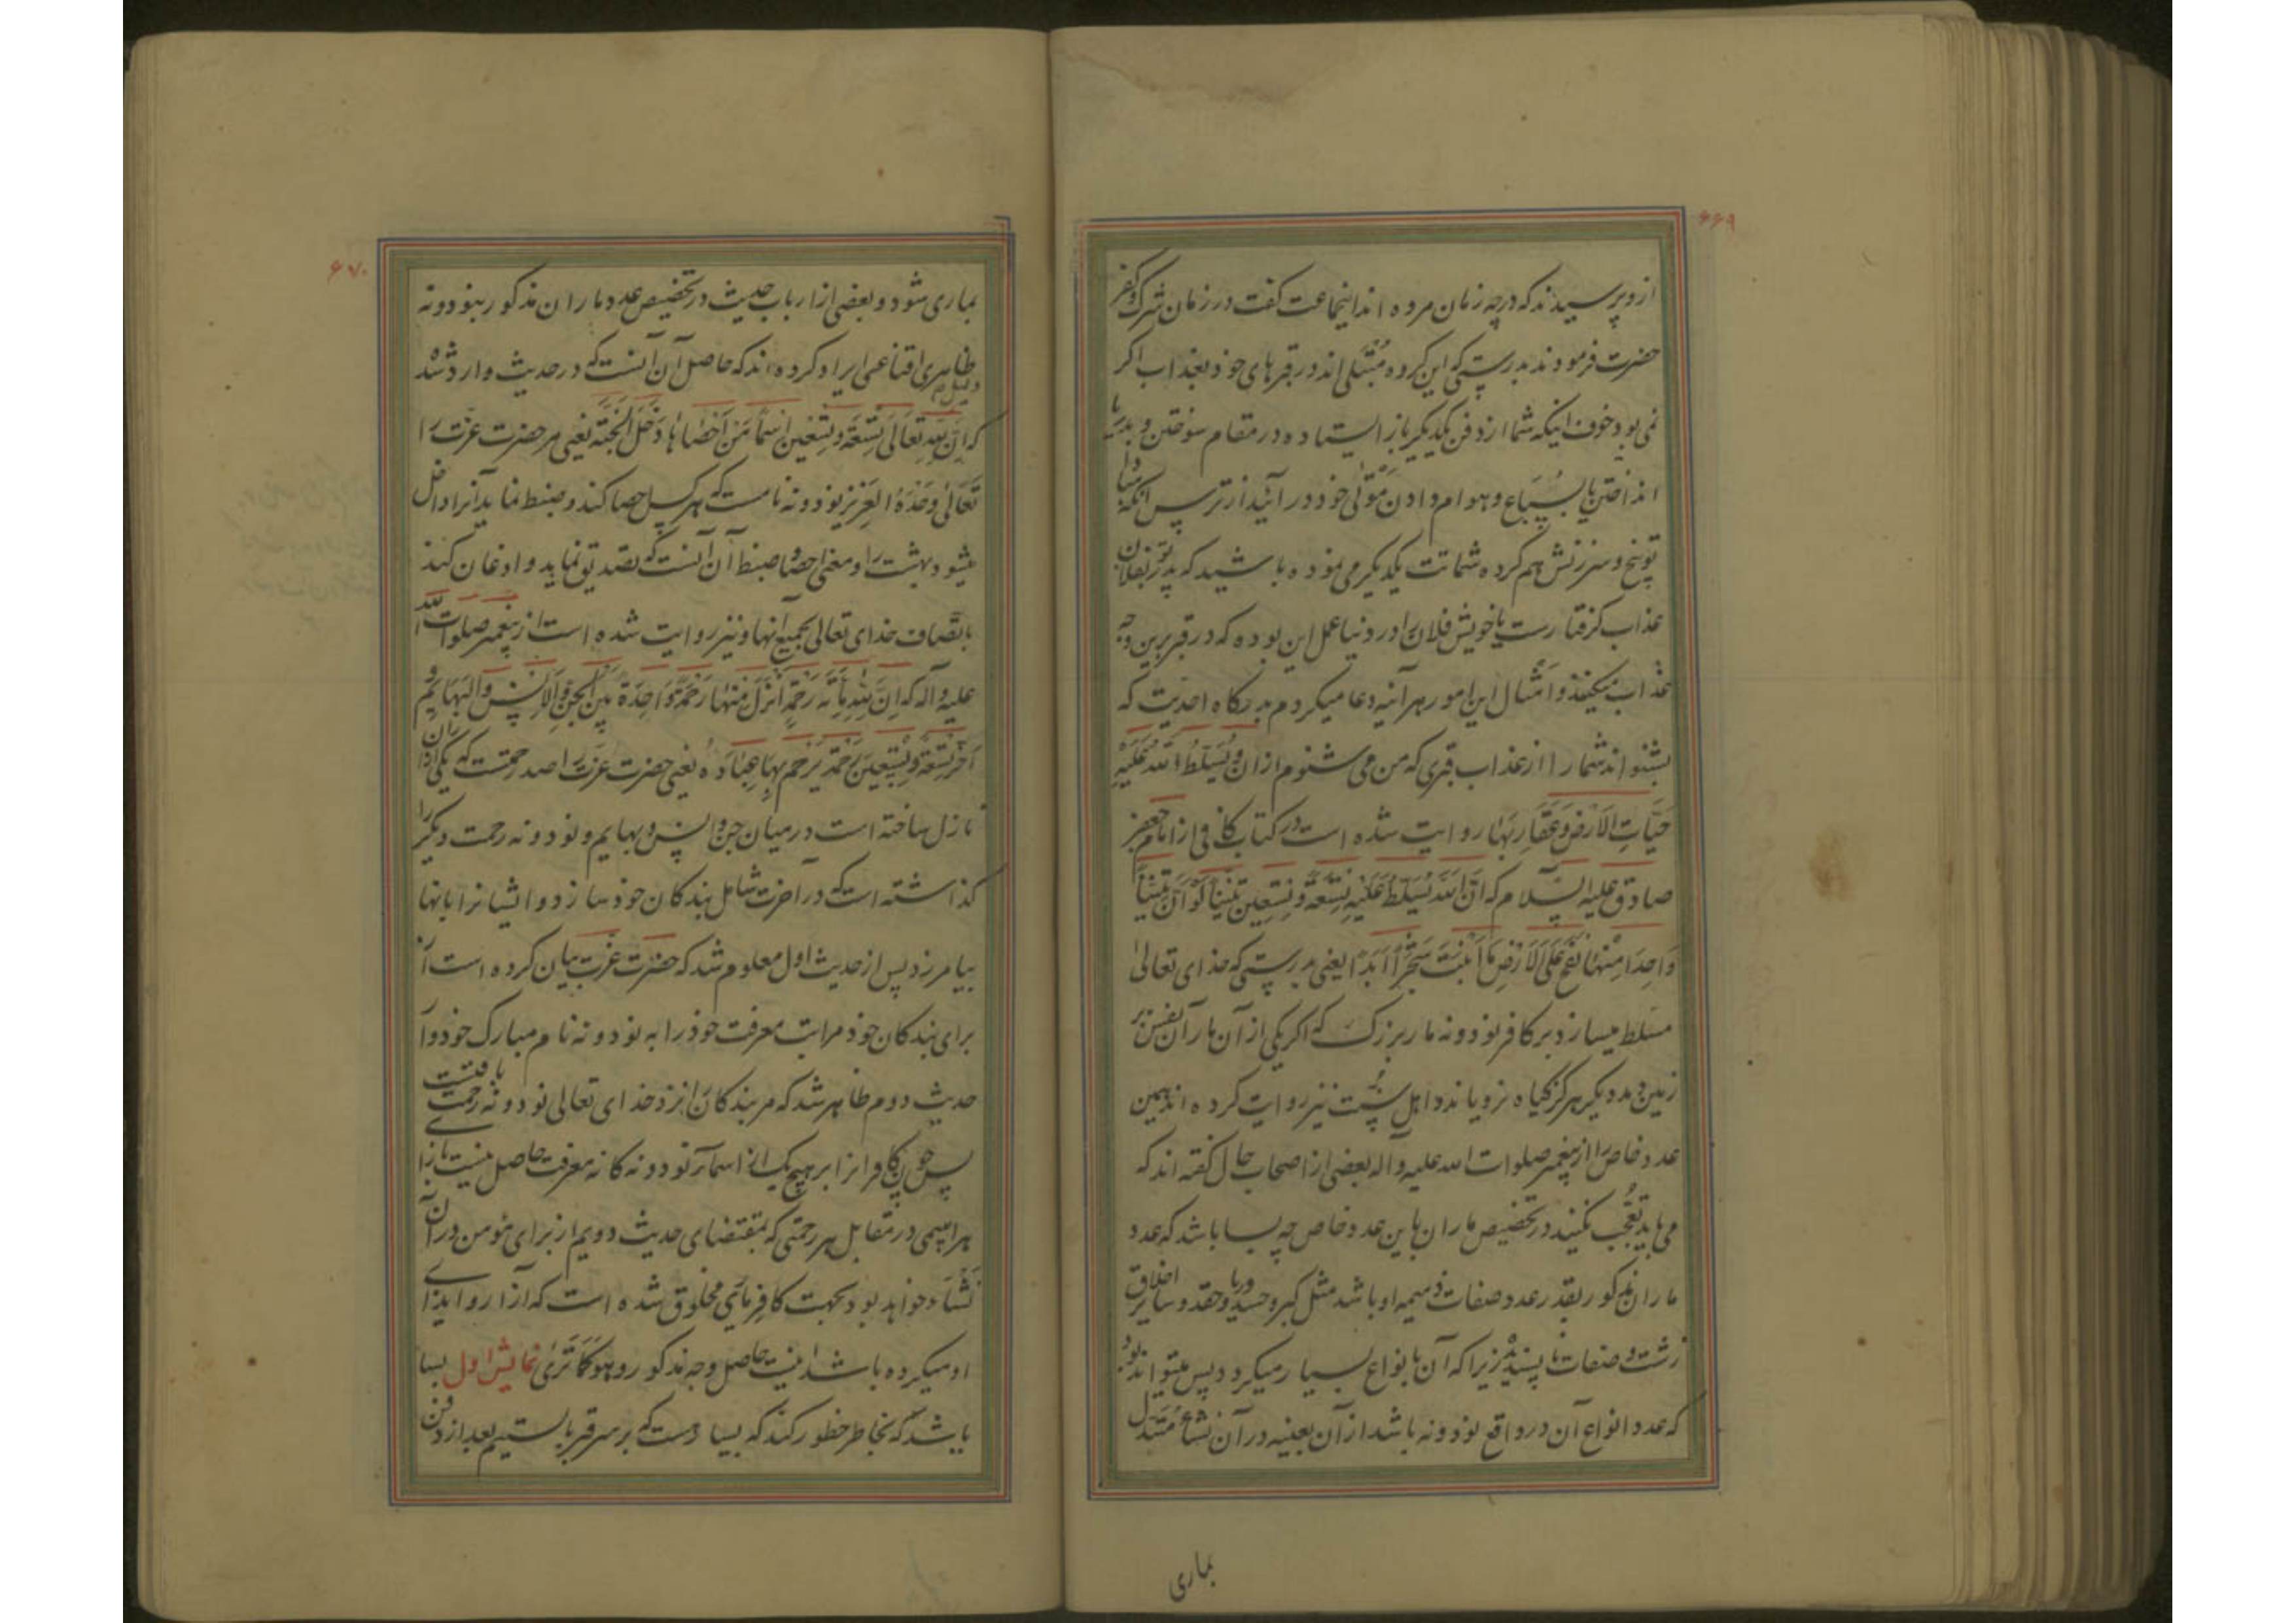 ۶۶۹
از و پرسیدند که در چه زمان مرده اند اینجماعت گفت در زمان شرک و کفر
حضرت فرمودند بدرستی که این کروه مُبْتَلی اند در قبرهای خود بعذاب اکر
نمی بود خوف اینکه شما از دفن یکدیکر باز ایستاده در مقام سوختن و بدریا
انداختن یا بسُباع و هوام دادن مَوْتٰی خود در آئید از ترس آنکه مبادا
توبیخ و سرزنش هم کرده شماتت یکدیکر می نموده باشید که پدر تو بفلان
عذاب کرفتارست یا خویش فلان را در دنیا عمل این بوده که در قبر برین وجه
عذاب میکنند و اَمْثال این امور هرآینه دعا میکردم بدرکاه احدیت که
بشنواند شما را از عذاب قبری که من می شنوم از ان و یُسَلِّطُ اللّه عَلَیْهِ
حَیّاتِ الاَرْضِ وَ عَقارِبَهٰا روایت شده است در کتاب کافی از امام جعفر
صادق علیه السّلام که اِنَّ اللّهَ یُسَلِّطُ عَلَیْهِ تِسْعَةً و تِسْعین تِنّیناً لَوْ اَنَّ تِنّیناً
وَاحِدَاً مِنْهٰا نَفَخَ عَلَی الاَرْضِ مٰا اَنْبَتَتْ شَجَرْاً اَبَدًا یعنی بدرستی که خدای تعالیٰ
مسلط میسازد بر کافر نود و نه مار بزرک که اکر یکی از آن ماران نفس بر
زمین دمد دیکر هرکز کیاه نرویاند و اهل سُنت نیز روایت کرده اند همین
عدد خاص را از پیغمبر صلوات اللّه علیه و اله بعضی از اصحاب حال کفته اند که
می باید تعجّب نکنند در تخصیص ماران باین عدد خاص چه بسا باشد که عدد
ماران مذکور بقدر عدد صفات ذمیمه او باشد مثل کبر و حسد و ریا و حقد و سایر اخلاق
زشت و صفات نا پسندیده زیرا که آن بانواع بسیار میکردد پس میتواند بود
که عدد انواع آن در واقع نود و نه باشد از آن بعینه در آن نشأ مُتَبَدِّل
بماری
۶۷۰
بماری شود و بعضی از ارباب حدیث در تخصیص عدد ماران مذکور بنود و نه
دلیل ظاهری اقناعی ایراد کرده اند که حاصل آن آنست که در حدیث وارد شده
که اِنَّ لِلّهِ تَعَالٰی تِسْعَةً وَ تِسْعینَ اسْمًا مَنْ اَحْصٰاهٰا دَخَلَ الْجَنَّة یعنی مر حضرت عزت را
تَعَالٰی وَحْدَهُ العَزِیز نود و نه نامست که هر کس احصا کند و ضبط نماید آنرا داخل
میشود بهشت را و معنی احصا و ضبط آن آنست که تصدیق نماید و اذعان کند
باتّصاف خدای تعالی بجمیع آنها و نیز روایت شده است از پیغمبر صلوات اللّه
علیه و اله که اِنَّ لِلّهِ مِائَةَ رَحْمَةٍ اَنْزَلَ مِنْهٰا رَحْمَةً وٰاحِدَةً بَیْنَ الْجِنِّ وَ الاِنْسِ وَ الْبَهٰایِمِ وَ
اَخَّرَ تِسْعَةً وَ تِسْعینَ رَحْمَةً یَرْحَمُ بِهٰا عِبٰادَهُ یعنی حضرت عزت را صد رحمتست که یکی از ان
نازل ساخته است در میان جن و انس و بهایم و نود و نه رحمت دیکر را
کذاشته است که در آخرت شامل بندکان خود سازد و ایشانرا بانها
بیامرزد پس از حدیث اول معلوم شد که حضرت عزت بیان کرده است از
برای بندکان خود مراتب معرفت خود را به نود و نه نام مبارک خود و از
حدیث دوم ظاهر شد که مر بندکان را نزد خدای تعالی نود و نه رحمت یافتست
پس چون کافرانرا بر هیچ یک از اسمآء نود و نه کانه معرفت حاصل نیست بازای
هر اسمی در مقابل هر رحمتی که بمقتضای حدیث دویم از برای مؤمن در آن
نَشْأه خواهد بود بجهت کافر ماری مخلوق شده است که آزار و ایذای
او میکرده باشد اینست حاصل وجه مذکور و هُوَ کَمَا تَرٰی نمایش اول بسا
باشد که بخاطر خطور کند که بسیارست که بر سر قبر بایستیم بعد از دفن